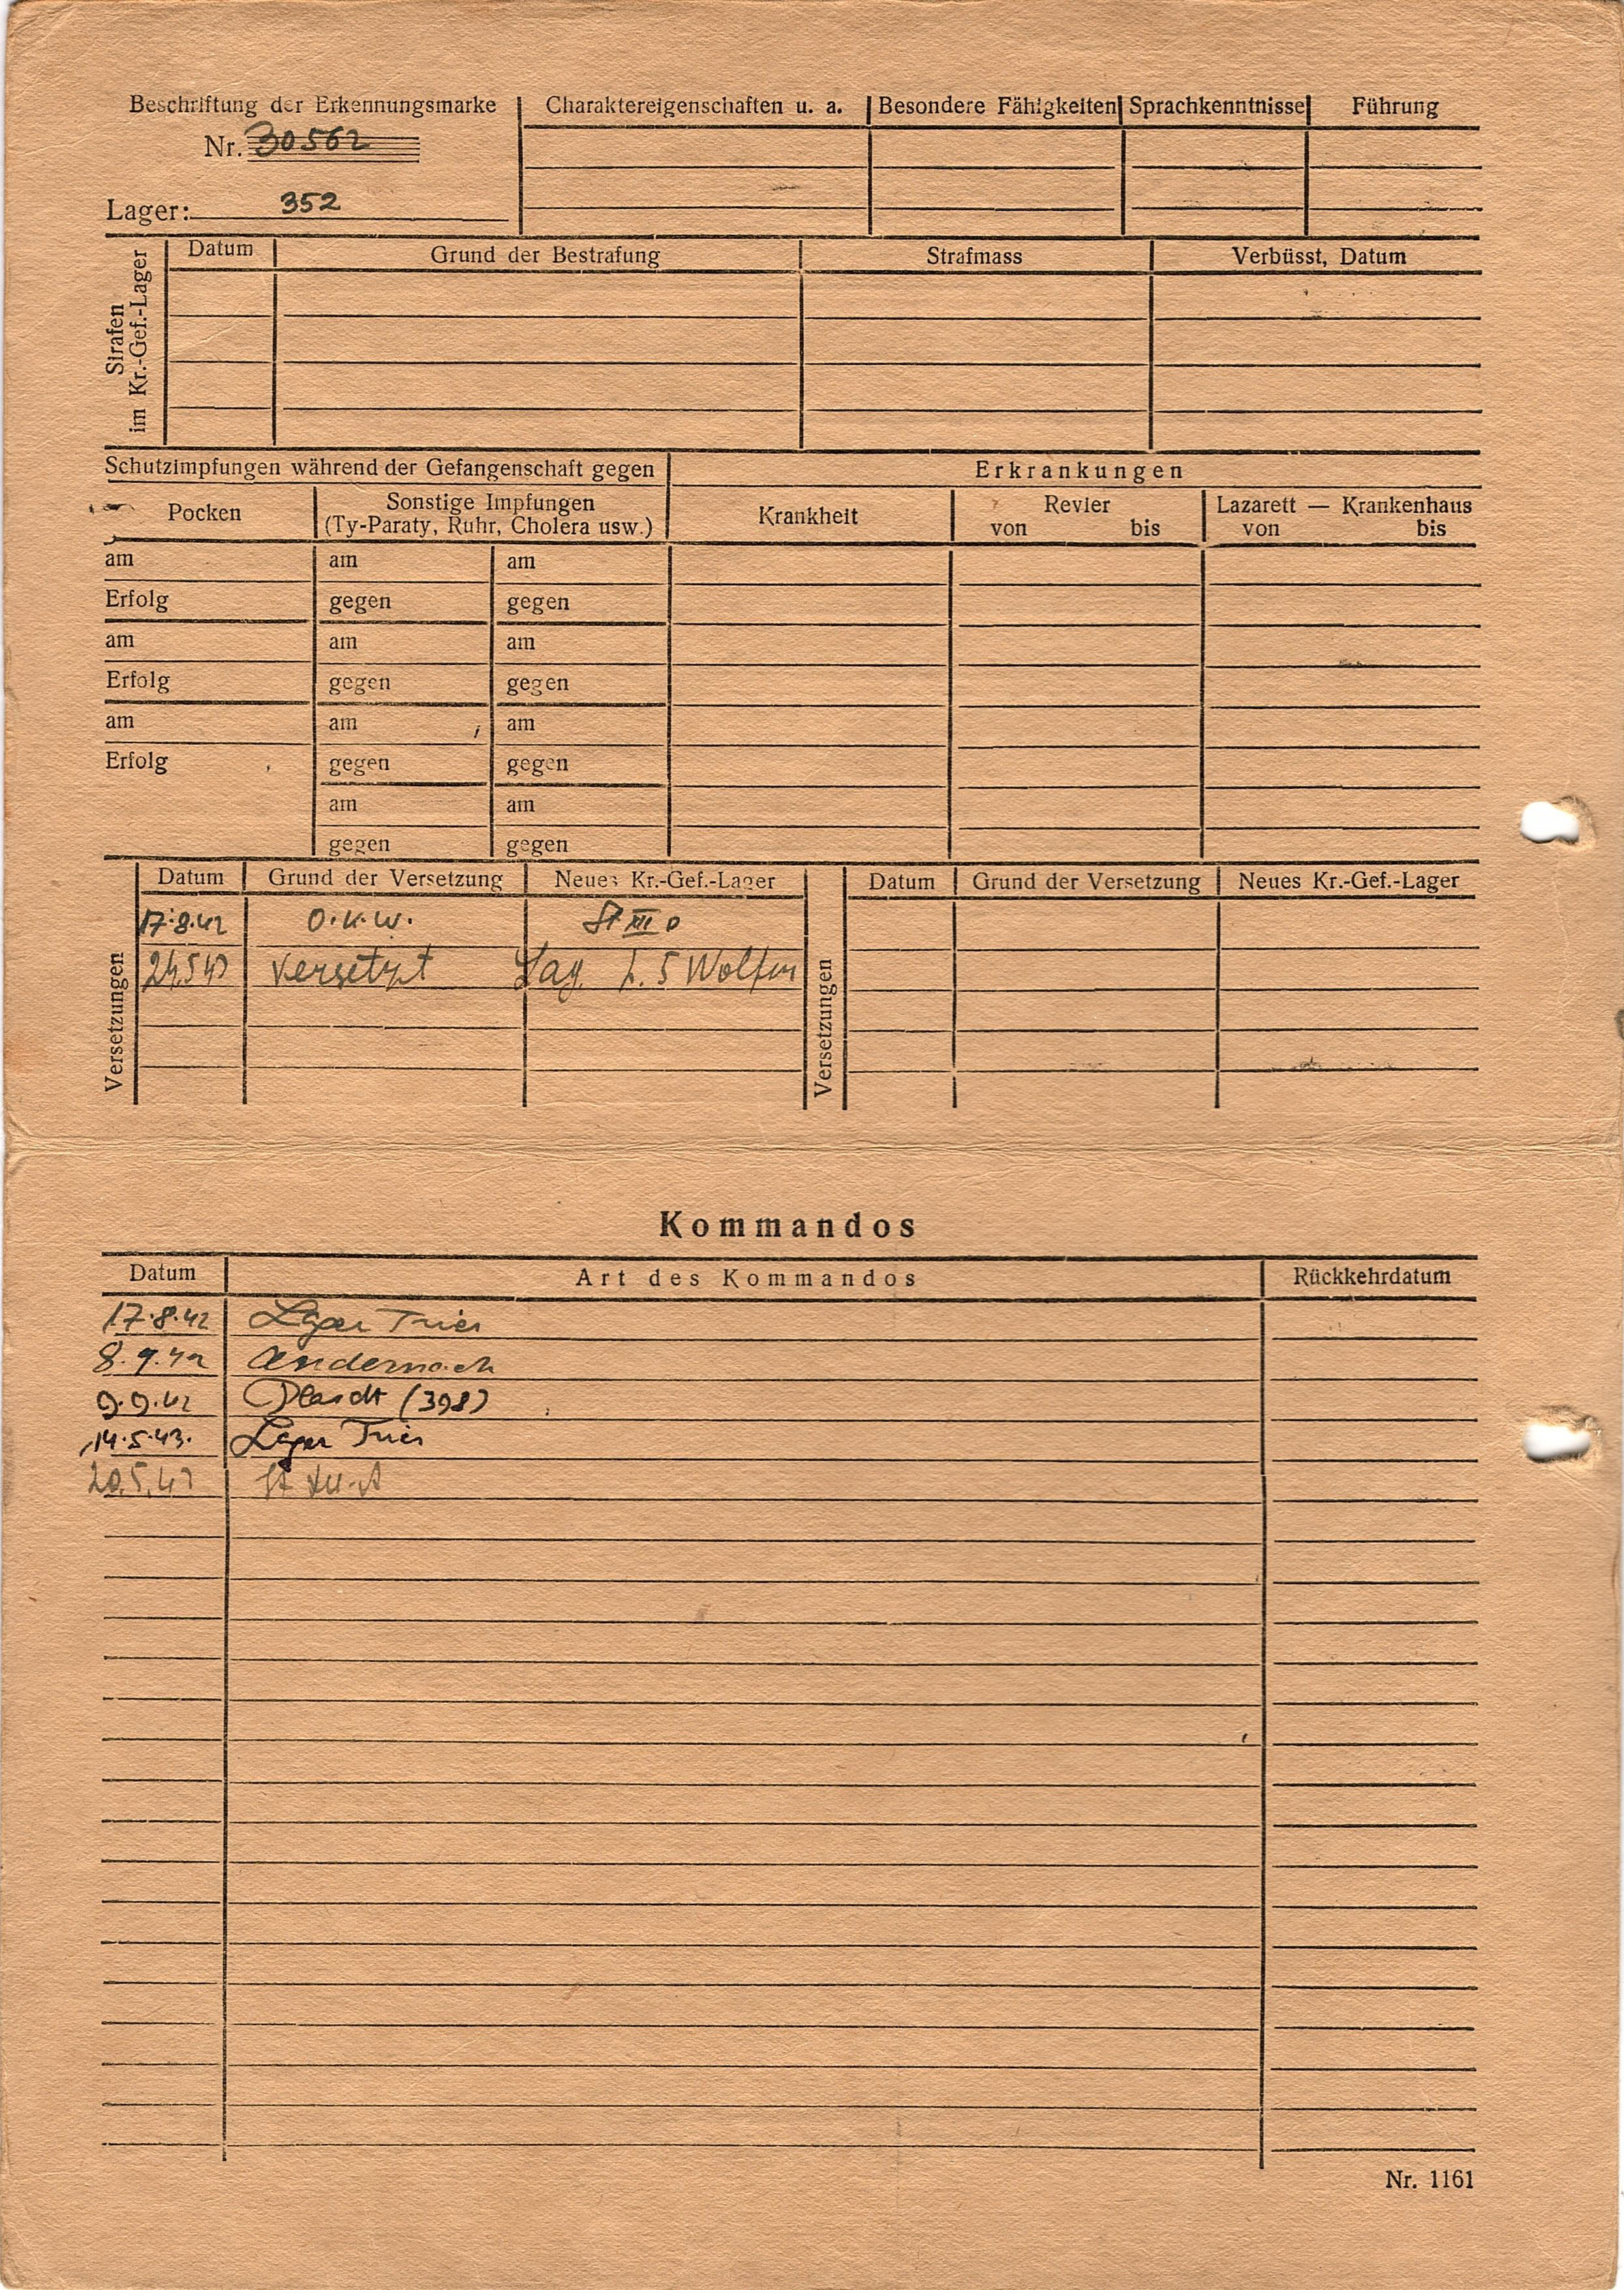 Beschriftung der Erkennungsmarke
Nr. 30562
Lager: 352
Charaktereigenschaften u. a.
Besondere Fähigkeiten
Sprachkenntnisse
Führung
Strafen
im Kr.-Gef.-Lager
Datum
Grund der Bestrafung
Strafmass
Verbüsst, Datum
Schutzimpfungen während der Gefangenschaft gegen
Erkrankungen
Pocken
Sonstige Impfungen
(Ty-Paraty, Ruhr, Cholera usw.)
Krankheit
Revier
von bis
Lazarett — Krankenhaus
von bis
am am am
Erfolg gegen gegen
am am am
Erfolg gegen gegen
am am am
Erfolg gegen gegen
am am
gegen gegen
Versetzungen
Datum Grund der Versetzung Neues Kr.-Gef.-Lager
17.8.42 O.K.W. St XII D
24.5.43 versetzt Lag. Wolfen
Versetzungen
Datum Grund der Versetzung Neues Kr.-Gef.-Lager
Kommandos
Datum Art des Kommandos Rückkehrdatum
17.8.42 Lager Trier
8.9.42 Andernach
9.9.42 (398)
14.5.43. Lager Trier
20.5.43 St
Nr. 1161